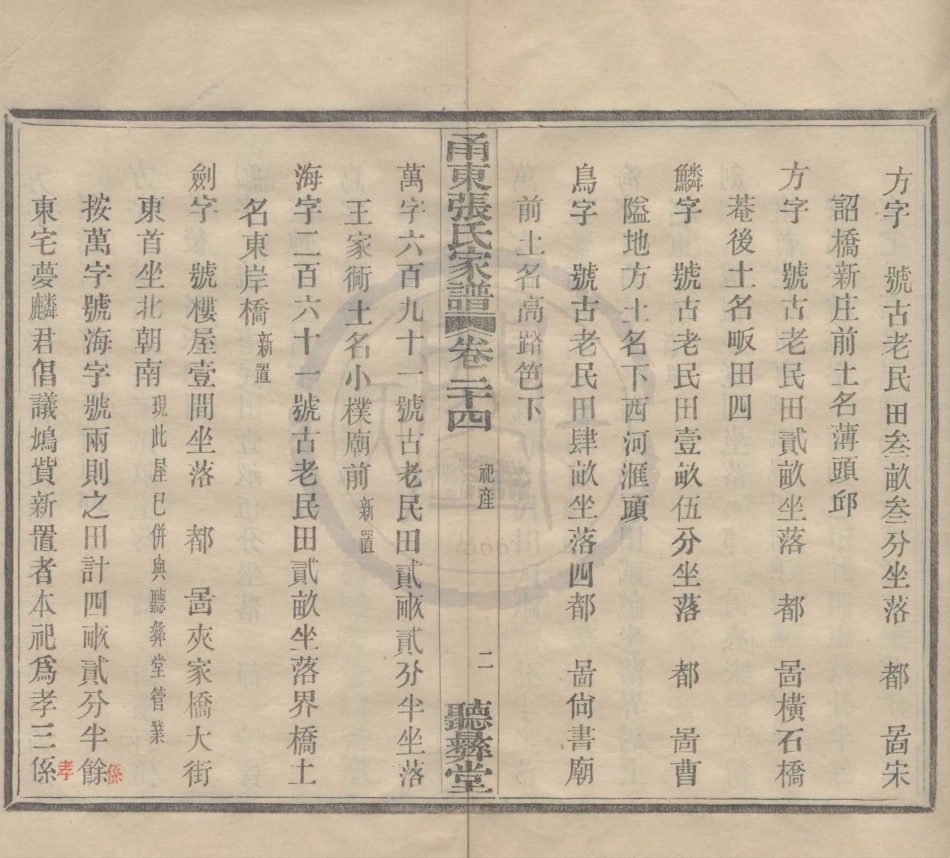 方字　號古老民田叁畝叁分坐落　都　啚宋
詔橋新庄前土名薄頭邱
方字　號古老民田貳畝坐落　都　啚橫石橋
菴後土名畈田四
鱗字　號古老民田壹畝伍分坐落　都　啚曹
隘地方土名下西河滙頭
鳥字　號古老民田肆畝坐落四都　啚尙書廟
前土名高路笆下
甬東張氏家譜　卷二十四　祀產　二　聽彝堂
萬字六百九十一號古老民田貳畝貳分半坐落
王家衕土名小樸廟前新置
海字二百六十一號古老民田貳畝坐落界橋土
名東岸橋新置
劍字　號樓屋壹間坐落　都　啚夾家橋大街
東首坐北朝南現此屋已併與聽彝堂管業
按萬字號海字號兩則之田計四畝貳分半餘係
東宅夢麟君倡議鳩貲新置者本祀爲孝三係孝